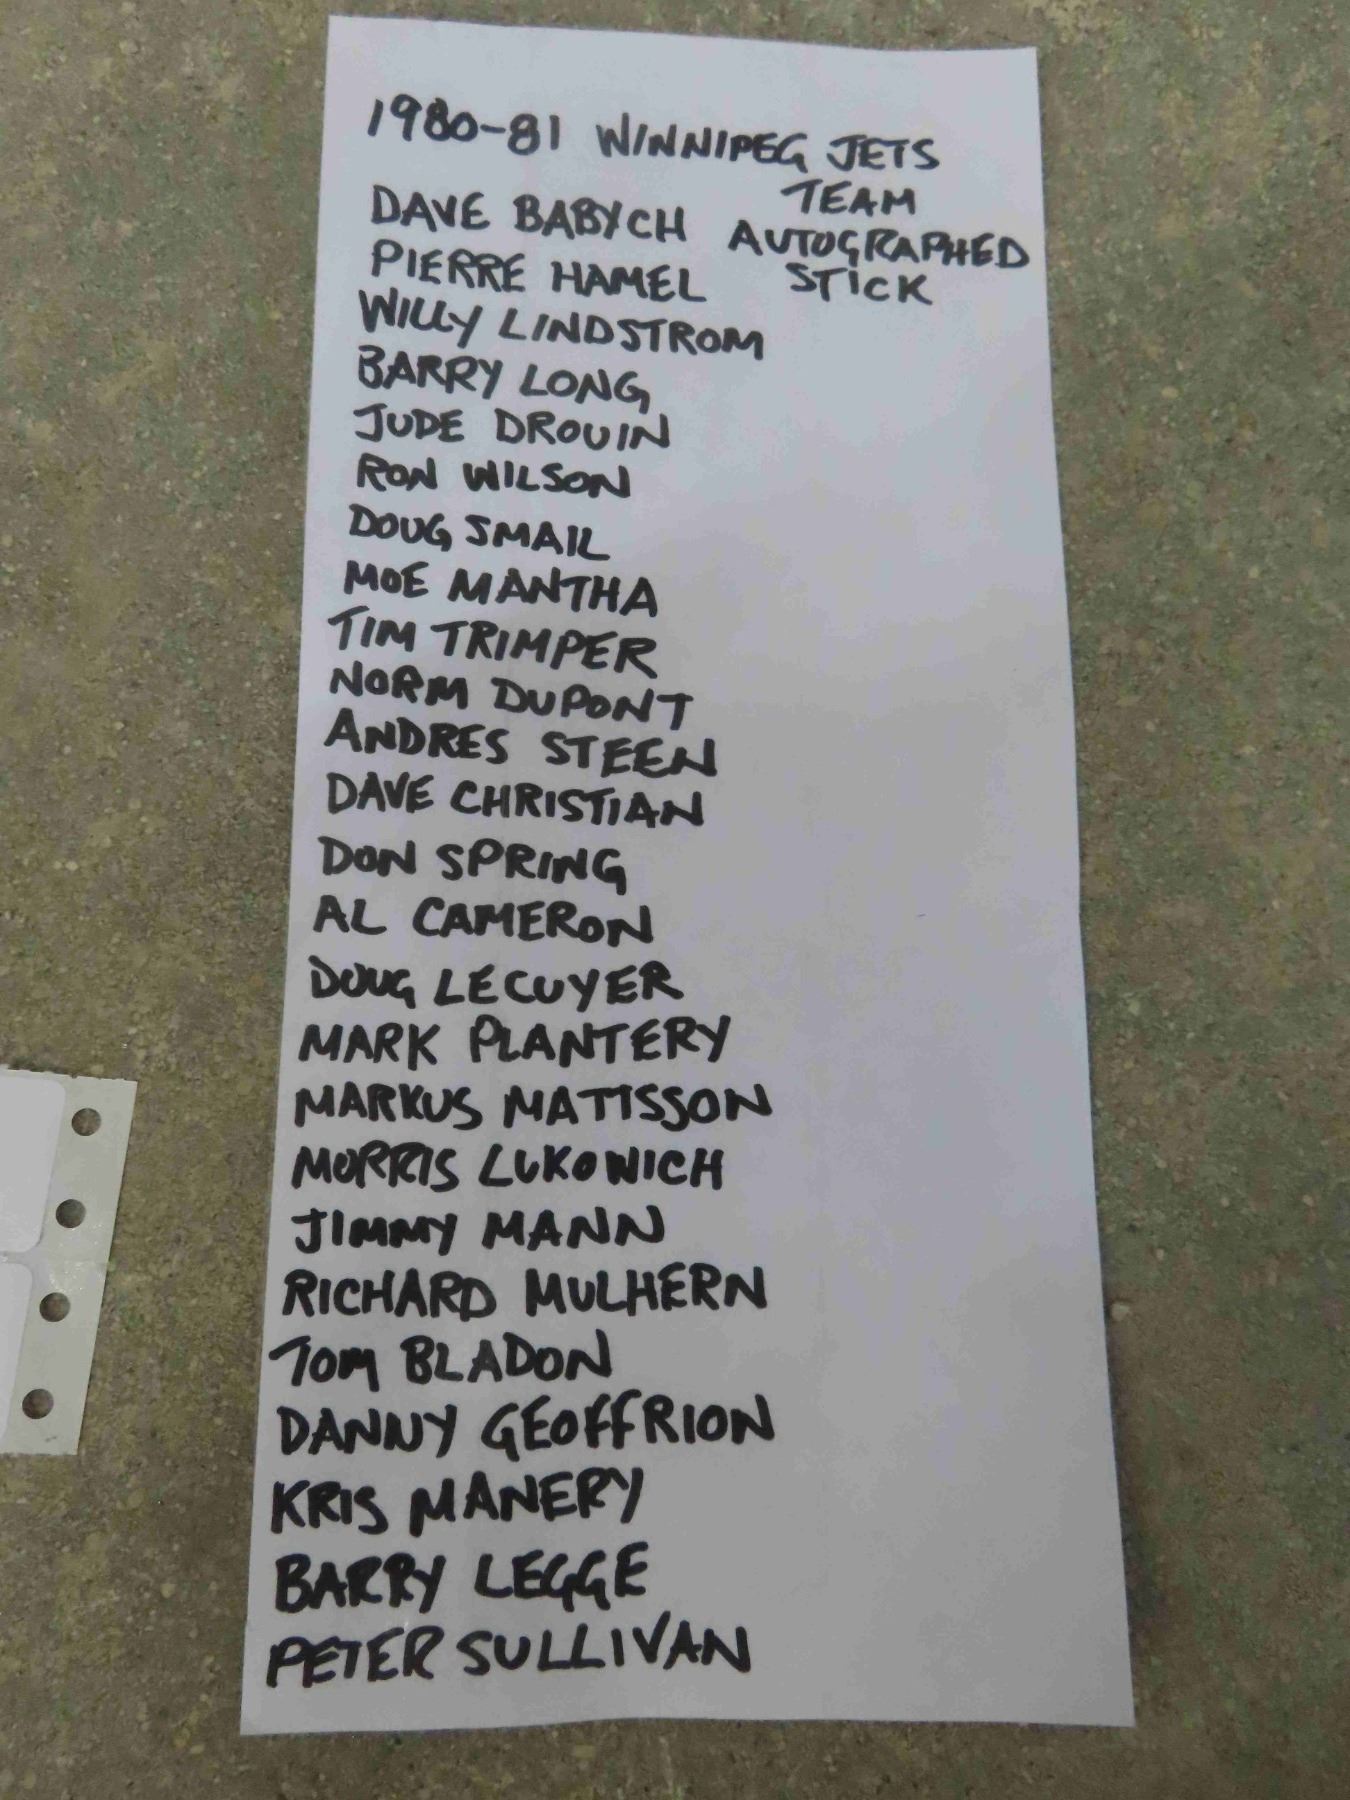 1980-81 WINNIPEG JETS
TEAM
AUTOGRAPHED
STICK
DAVE BABYCH
PIERRE HAMEL
WILLY LINDSTROM
BARRY LONG
JUDE DROUIN
RON WILSON
DOUG SMAIL
MOE MANTHA
TIM TRIMPER
NORM DUPONT
ANDRES STEEN
DAVE CHRISTIAN
DON SPRING
AL CAMERON
DOUG LECUYER
MARK PLANTERY
MARKUS MATTSSON
MORRIS LUKOWICH
JIMMY MANN
RICHARD MULHERN
TOM BLADON
DANNY GEOFFRION
KRIS MANERY
BARRY LEGGE
PETER SULLIVAN